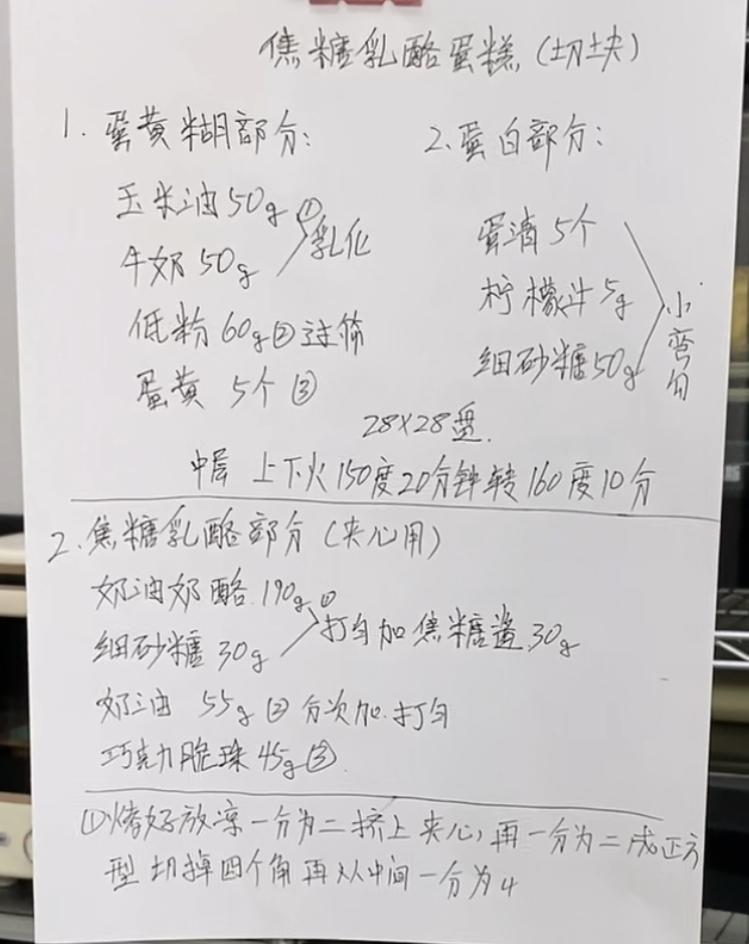 焦糖乳酪蛋糕(切块)
1. 蛋黄糊部分:
玉米油 50g ①
牛奶 50g 乳化
低粉 60g ② 过筛
蛋黄 5个 ③
2. 蛋白部分:
蛋清 5个
柠檬汁 5g
细砂糖 50g
小弯勾
28×28盘.
中层 上下火150度20分钟转160度10分
2. 焦糖乳酪部分(夹心用)
奶油奶酪 190g ①
细砂糖 30g 打匀加焦糖酱 30g
奶油 55g ② 分次加.打匀
巧克力脆珠 45g ③.
①烤好放凉一分为二挤上夹心,再一分为二成正方
型 切掉四个角再从中间一分为4